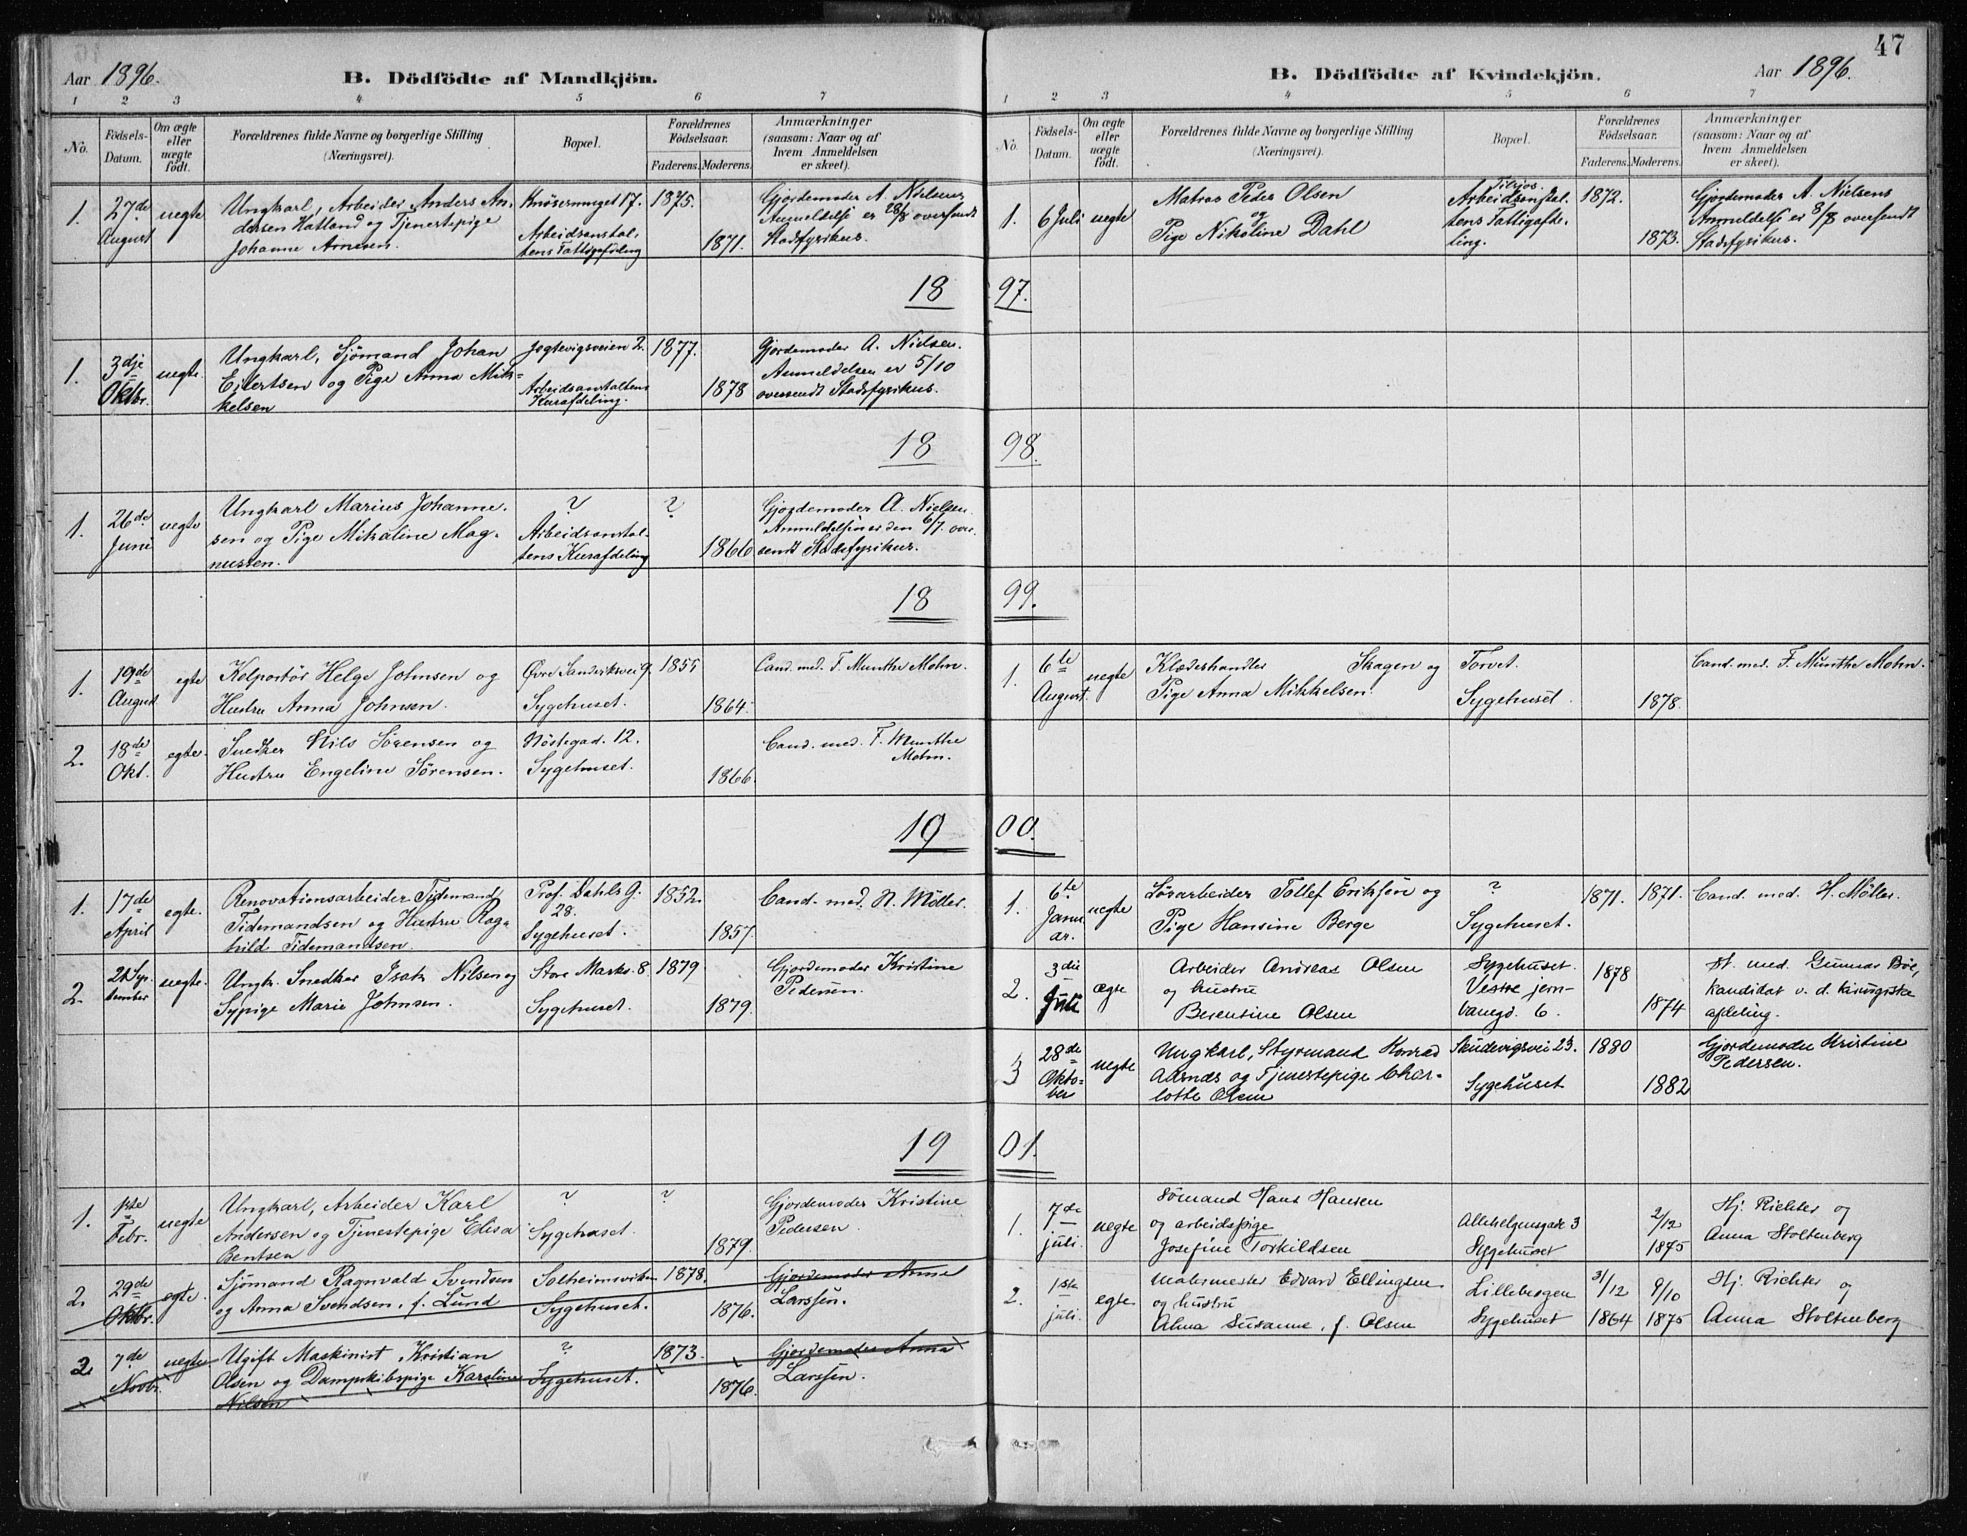 Aar 1896.
B. Dödfödte af Mandkjön.
1 2 3 4 5 6 7
No.
Födsels-
Datum.
Om ægte
eller
uægte
födt.
Forældrenes fulde Navne og borgerlige Stilling
(Næringsvei).
Bopæl.
Forældrenes
Födselsaar.
Faderens. Moderens.
Anmærkninger
(saasom: Naar og af
hvem Anmeldelsen
er skeet).
1. 27de August uegte
Ungkarl, Arbeider Anders An-
dersen Hatland og Tjenestepige
Johanne Arnesen.
Knøsesmuget 17.
Arbeidsanstal-
tens Fattigafdeling
1875.
1871.
Gjordemoder A. Nielsens
Anmeldelse er 28/8 oversendt
Stadsfysikus.
18
1. 3dje Oktbr. uegte.
Ungkarl, Sjömand Johan
Eilertsen og Pige Anna Mik-
kelsen
Jegtevigsveien 2.
Arbeidsanstaltens
Kurafdeling.
1877.
1878
Gjordemoder A. Nielsen.
Anmeldelsen er 5/10
oversendt Stadsfysikus.
18
1. 26de Juni uegte
Ungkarl Marius Johanne-
sen og Pige Mikaline Mag-
nussen.
?
Arbeidsanstal-
tens Kurafdeling
?
1866
Gjordemoder A. Nielsen.
Anmeldelsen er den 6/7. over-
sendt Stadsfysikus.
18
1. 19de August egte
Kolportör Helge Johnsen og
Hustru Anna Johnsen.
Øvre Sandviksvei 9.
Sygehuset.
1855
1864.
Cand. med. F. Munthe Mohn.
2. 18de Okt. egte.
Snedker Nils Sörensen og
Hustru Engeline Sörensen.
Nöstegad. 12.
Sygehuset.
1866.
Cand. med. F. Munthe
Mohn.
19
1. 17de April egte.
Renovationsarbeider Tidemand
Tidemandsen og Hustru Rag-
hild Tidemandsen
Prof. Dahls G.
28.
Sygehuset.
1852.
1857.
Cand. med. H. Möller.
2. 21 Sep-
tember uegte.
Ungk. Snedker Isak Nilsen og
Sypige Marie Johnsen.
Store Markv. 8.
Sygehuset.
1879
1879.
Gjordemoder Kristine
Pedersen.
19
1. 1ste Febr. uegte
Ungkarl, Arbeider Karl
Andersen og Tjenestepige Elisa
Bentsen
?
Sygehuset.
?
1879.
Gjordemoder Kristine
Pedersen.
2. 29de Oktbr. egte.
Sjömand Ragnvald Svendsen
og Anna Svendsen, f. Lund
Solheimsviken
Sygehuset.
1878.
1876.
Gjordemoder Anna
Larssen.
2. 7de Novbr. uegte
Ugift Maskinist Kristian
Olsen og Dampkibspige Karoline
Nilsen
?
Sygehuset.
1873.
1876.
Gjordemoder Anna
Larssen.
47
B. Dödfödte af Kvindekjön.
Aar 1896.
1 2 3 4 5 6 7
No.
Födsels-
Datum.
Om ægte
eller
uægte
födt.
Forældrenes fulde Navne og borgerlige Stilling
(Næringsvei).
Bopæl.
Forældrenes
Födselsaar.
Faderens. Moderens.
Anmærkninger
(saasom: Naar og af
hvem Anmeldelsen
er skeet).
1. 6 Juli uegte
Matros Peder Olsen
og
Pige Nikoline Dahl
Arbeidsanstal-
tens Fattigafde-
ling.
1872.
1873.
Gjordemoder A. Nielsens
Anmeldelse er 8/8 oversendt
Stadsfysikus.
97.
98.
99.
1. 6te August uegte
Klædeshandler Skagen og
Pige Anna Mikkelsen.
Torvet.
Sygehuset
1878.
Cand. med. F. Munthe Mohn.
00.
1. 6te Janu-
ar. uegte
Lösarbeider Tollef Eriksen og
Pige Hansine Berge
?
Sygehuset.
1871. 1871.
Cand. med. H. Möller.
2. 3die Juli ægte
Arbeider Andreas Olsen
og hustru
Berentine Olsen
Sygehuset.
Vestre jern-
baneg. 6.
1878
1874
St. med. Gunnar Bøe,
kandidat v. d. kirurgiske
afdeling.
3 28de Okto-
ber uegte
Ungkarl, Styrmand Konrad
Aarnes og Tjenestepige Char-
lotte Olsen
Skudevigsvei 23.
Sygehuset
1880
1882
Gjordemoder Kristine
Pedersen.
01.
1. 7de juli. uegte
Sømand Hans Hansen
og arbeidspige
Josefine Torkildsen
Allehelgensgade 3
Sygehuset
2/12
1875
Hj. Richter og
Anna Stoltenberg
2. 1ste juli. egte
Malermester Edvard Ellingsen
og hustru
Alma Susanne, f. Olsen
Lillebergen
Sygehuset
31/12
1864
9/10
1875
Hj. Richter og
Anna Stoltenberg